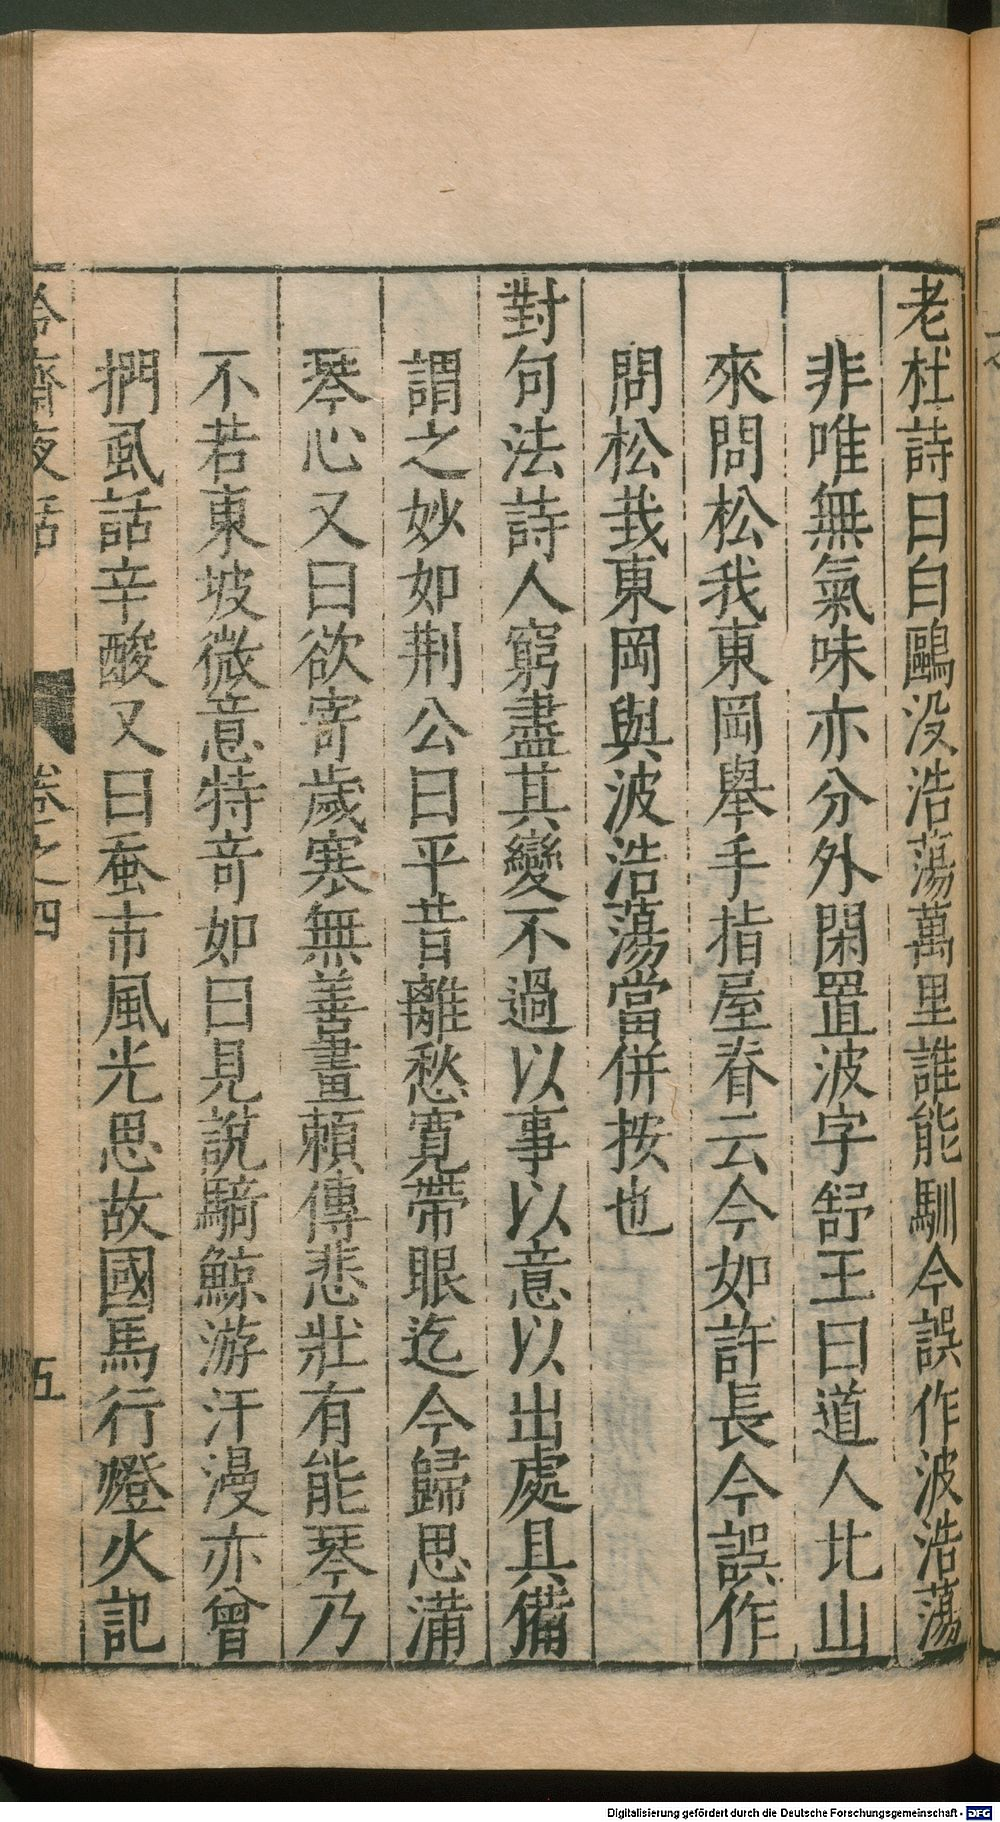 老杜詩曰白鷗没浩蕩萬里誰能馴今誤作波浩蕩
非唯無氣味亦分外閑置波字舒王曰道人北山
來問松我東岡舉手指屋脊云今如許長今誤作
問松栽東岡與波浩蕩當併按也
對句法詩人窮盡其變不過以事以意以出處具備
謂之妙如荆公曰平昔離愁寬帶眼迄今歸思滿
琴心又曰欲寄歲寒無善畫賴傳悲壯有能琴乃
不若東坡微意特竒如曰見説騎鯨游汗漫亦曾
捫虱話辛酸又曰蚕市風光思故國馬行燈火記
冷齋夜話 卷之四 五
Digitalisierung gefördert durch die Deutsche Forschungsgemeinschaft - DFG